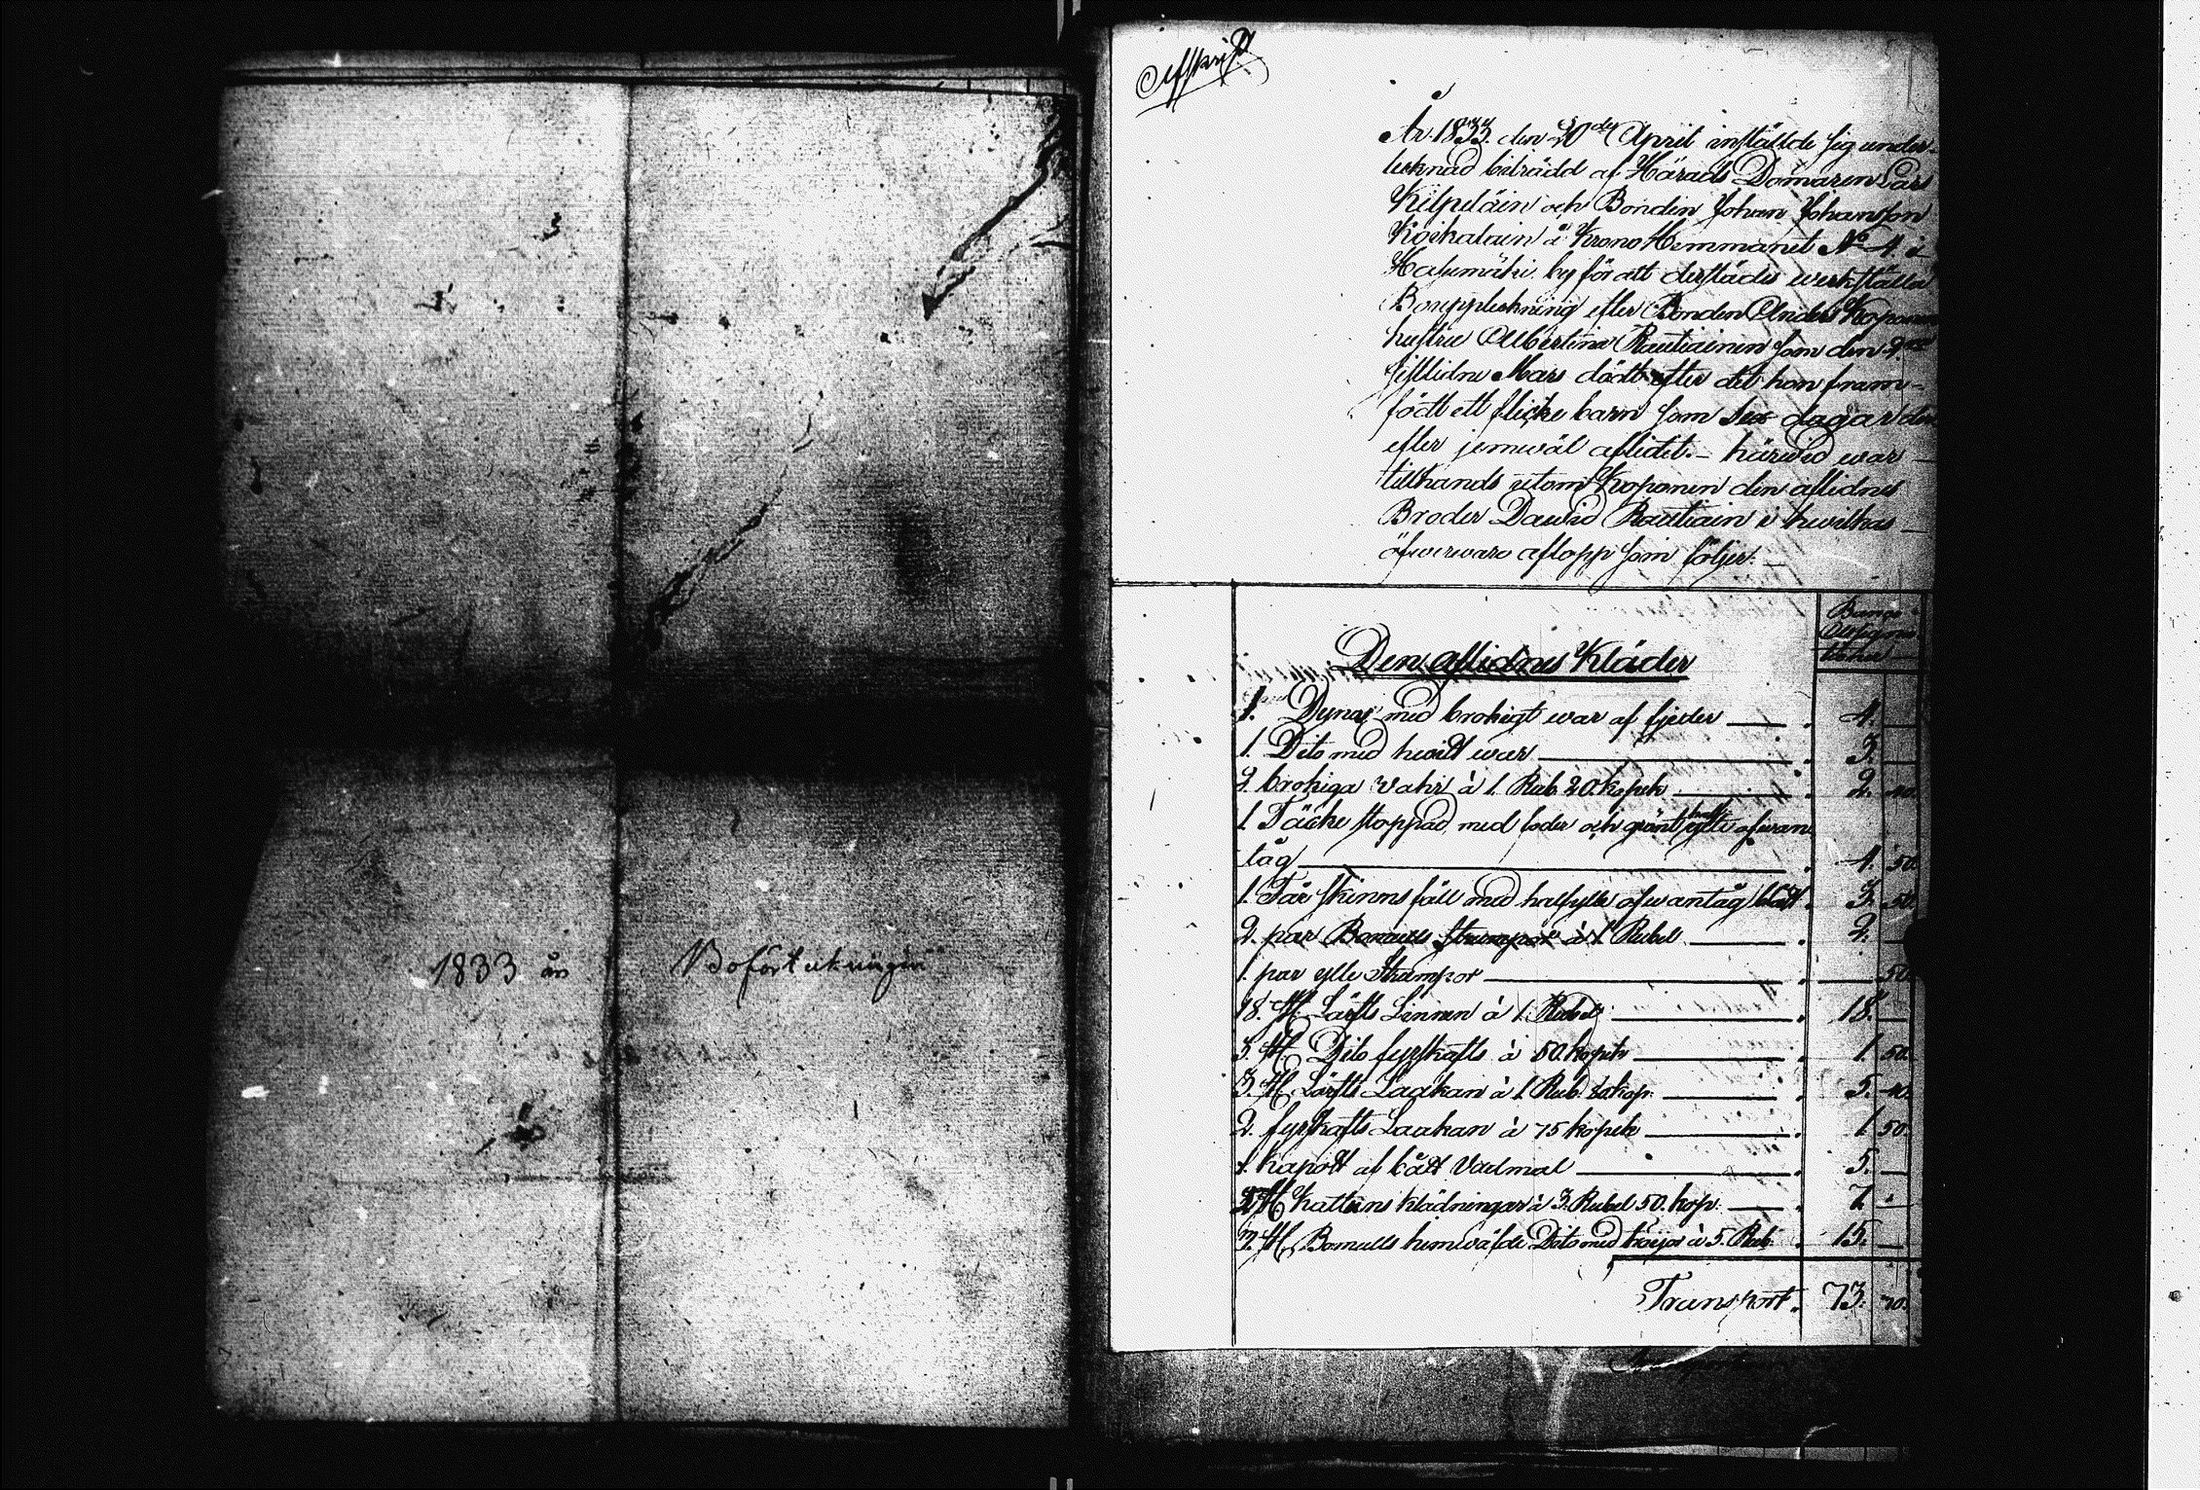 1833 års Boförtekningen
Afskrift
År 1833 den 20de April instälde sig under-
teknad biträdd af Härads Domaren Lars
Kilpeläin och Bonden Johan Johansson
å Krono Hemmanet No 4 i
by för att derstädes werkställa
Bouppteckning efter Bonden Anders Koponens
hustru Albertina Rautiainen som den
sistledne Mars dödt efter det hon fram-
födt ett flicke barn som sex dagar der
efter jemwäl aflidet. – härwid war
tillhands utom Koponen den aflidnes
Broder Dawid Rautiain i hwilkas
öfwerwaro aflopp som följer.
Banco
Assigna
Den aflidnes Kläder
1. Dyna med brokigt war af fjeder 4. —
1. Dito med hwitt war 3. —
2. brokiga Vahr à 1. Rub. 20. kopek 2. 40.
1. Täcke stoppad med foder och grönt half ylle ofwan
tåg 4. 50.
1. Får skinns fäll med halfylle ofwantåg blått 3. 50.
2. par Bomulls Strumpor à 1 Rubel 2. —
1. par ylle Strumpor 50.
18. st. Lärfts Linnen à 1. Rubel 18. —
3. st. Dito fyrskafts à 50. kopek 1. 50.
3. st. Lärfts Laakan à 1. Rub. 80. kop. 5. 40.
2. fyrskafts Laakan à 75 kopek 1. 50.
1. kapott af blått Vadmal 5. —
2. st. Kattuns klädningar à 3. Rubel 50. kop. 7. —
3. st. Bomulls hemwäfde Dito med tröijor à 5. Rub. 15. —
Transport. 73. 70.